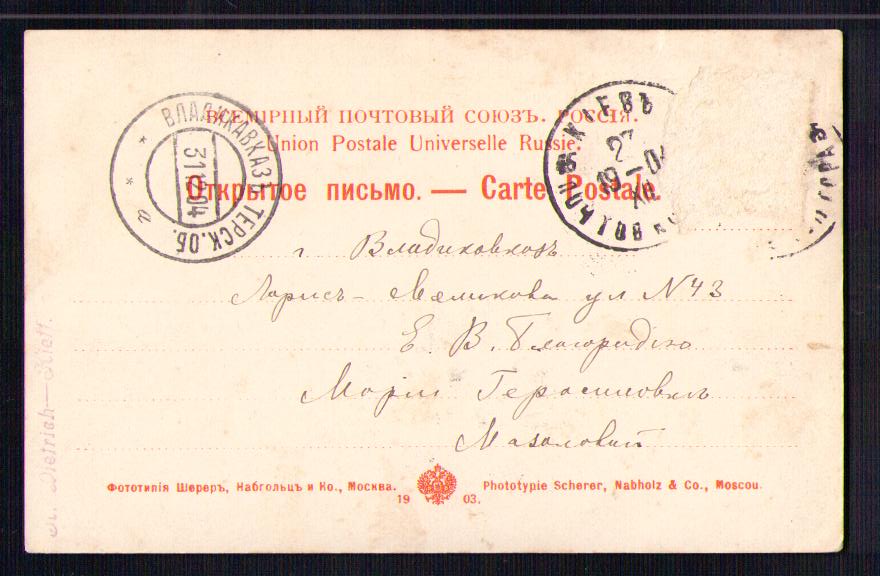 ВСЕМІРНЫЙ ПОЧТОВЫЙ СОЮЗЪ. РОССІЯ.
Union Postale Universelle Russie.
Открытое письмо. — Carte Postale.
ВЛАДИКАВКАЗЪ ТЕРСК.ОБ.
31.12.04
а
КІЕВЪ
27
19-04
XII
г Владикавказъ
Лорисъ-Меликова ул N 43
Е. В. Благородію
Маріи Герасимовнъ
Мазаловай
Фототипія Шереръ, Набгольцъ и Ко., Москва.
19 03.
Phototypie Scherer, Nabholz & Co., Moscou.
Dietrich—Kieff.